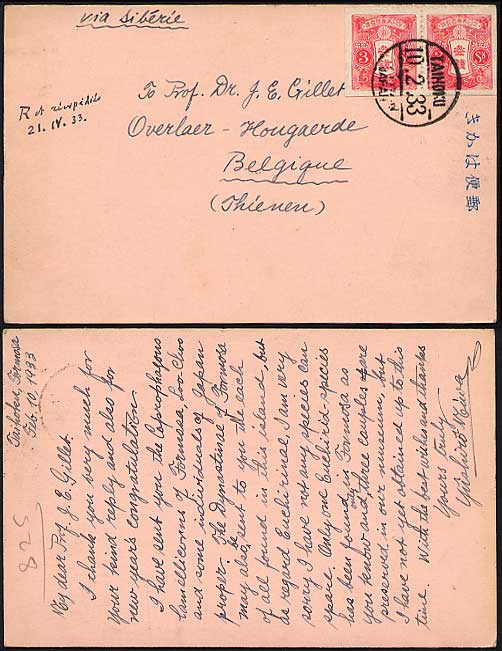 via Sibérie
3 3 Sn
TAIHOKU
10.2.33
JAPAN
R et réexpédiés
21.IV.33.
To Prof. Dr. J. E. Gillet
Overlaer-Hougaerde
Belgique
(Thienen)
きかは便郵
Taihoku, Formosa
Feb. 10, 1933
528
My dear Prof. J. E. Gillet.
I thank you very much for
your kind reply and also for
new years congratulation.
I have sent you the Coprophagous
Lamellicorns of Formosa, Loo Choo
and some individuals of Japan
proper. The Dynastinae of Formosa
may also be sent to you the each
of all found in this island, but
as regard Euchirinae, I am very
sorry I have not any species can
spare. Only one Euchirid species
has been found in Formosa as
you know and only three couples are
preserved in our museum, but
I have not yet obtained up to this
time. With the best wishes and thanks
Yours truly
Yûshirô Miwa